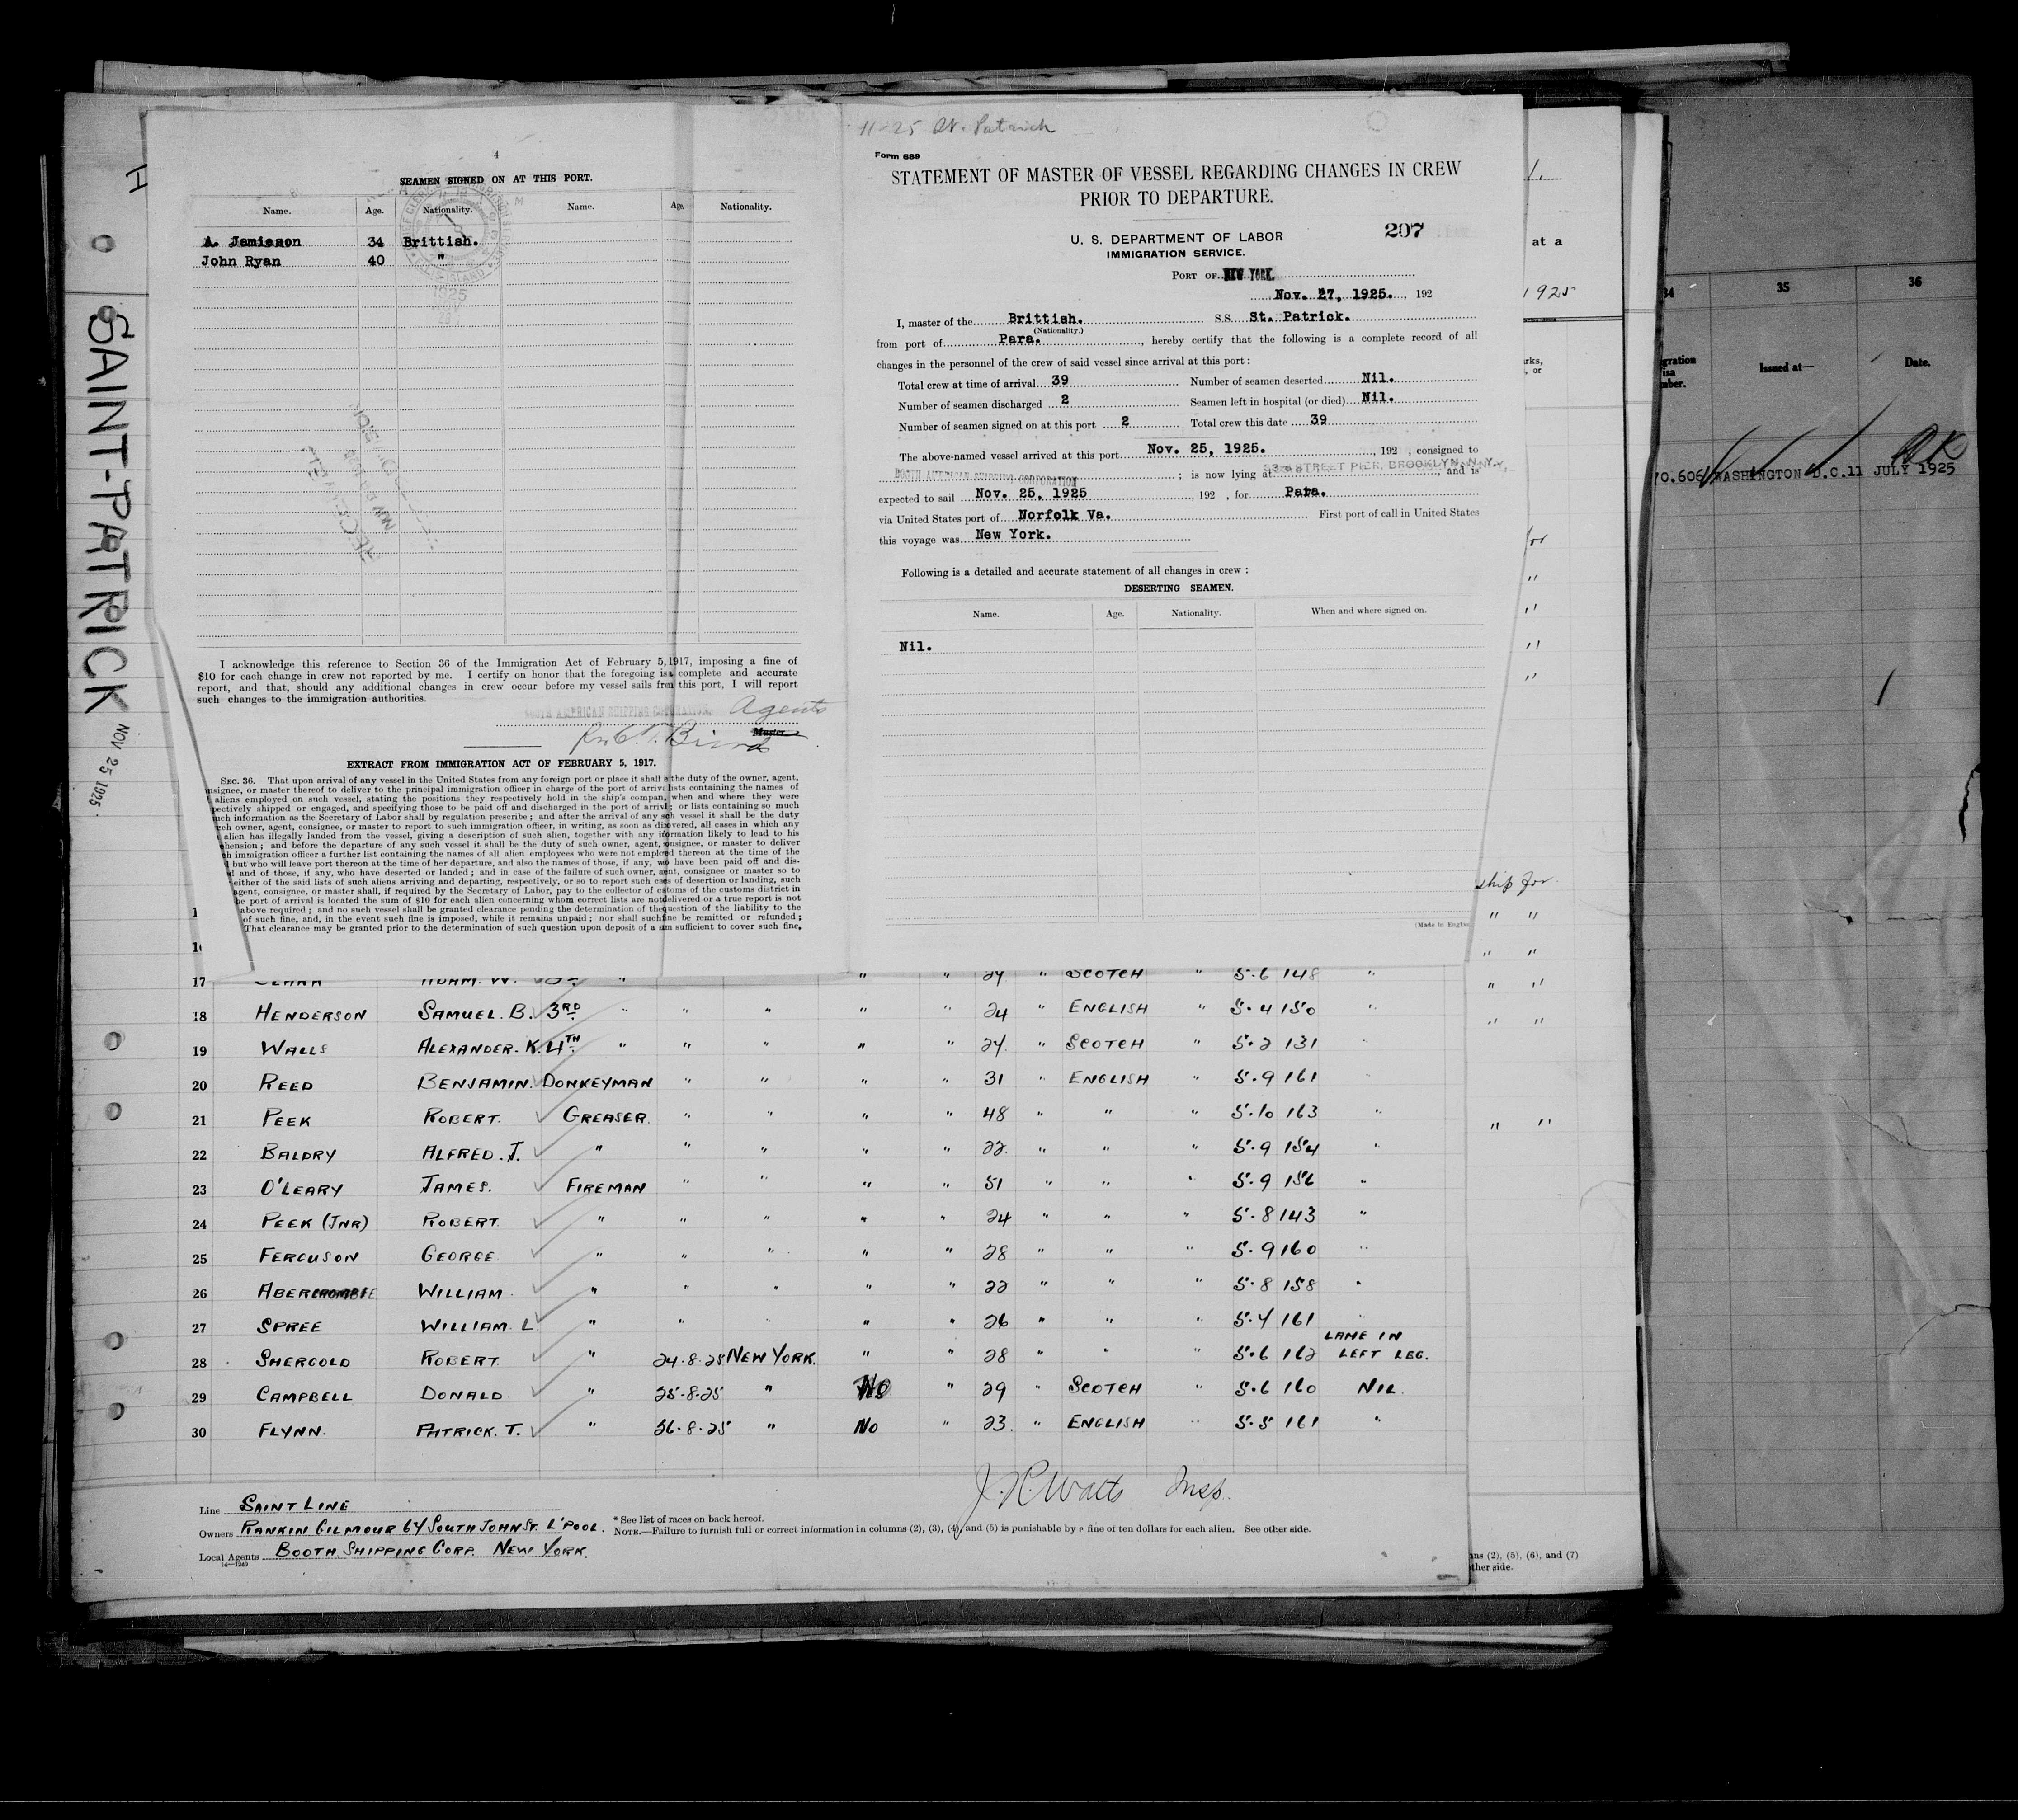 SAINT-PATRICK NOV 25 1925
4
SEAMEN SIGNED ON AT THIS PORT.
Name. Age. Nationality. Name. Age. Nationality.
A. Jamieson 34 Brittish.
John Ryan 40 "
1925
I acknowledge this reference to Section 36 of the Immigration Act of February 5, 1917, imposing a fine of
$10 for each change in crew not reported by me. I certify on honor that the foregoing is a complete and accurate
report, and that, should any additional changes in crew occur before my vessel sails from this port, I will report
such changes to the immigration authorities.
Agents
Master.
EXTRACT FROM IMMIGRATION ACT OF FEBRUARY 5, 1917.
SEC. 36. That upon arrival of any vessel in the United States from any foreign port or place it shall the duty of the owner, agent,
nsignee, or master thereof to deliver to the principal immigration officer in charge of the port of arriv lists containing the names of
aliens employed on such vessel, stating the positions they respectively hold in the ship's compan, when and where they were
pectively shipped or engaged, and specifying those to be paid off and discharged in the port of arrival; or lists containing so much
uch information as the Secretary of Labor shall by regulation prescribe; and after the arrival of any such vessel it shall be the duty
ch owner, agent, consignee, or master to report to such immigration officer, in writing, as soon as discovered, all cases in which any
alien has illegally landed from the vessel, giving a description of such alien, together with any information likely to lead to his
hension; and before the departure of any such vessel it shall be the duty of such owner, agent, consignee, or master to deliver
h immigration officer a further list containing the names of all alien employees who were not employed thereon at the time of the
l but who will leave port thereon at the time of her departure, and also the names of those, if any, who have been paid off and dis-
d and of those, if any, who have deserted or landed; and in case of the failure of such owner, agent, consignee or master so to
either of the said lists of such aliens arriving and departing, respectively, or so to report such cases of desertion or landing, such
agent, consignee, or master shall, if required by the Secretary of Labor, pay to the collector of customs of the customs district in
he port of arrival is located the sum of $10 for each alien concerning whom correct lists are not delivered or a true report is not
above required; and no such vessel shall be granted clearance pending the determination of the question of the liability to the
of such fine, and, in the event such fine is imposed, while it remains unpaid; nor shall such fine be remitted or refunded;
That clearance may be granted prior to the determination of such question upon deposit of a sum sufficient to cover such fine,
11-25 St. Patrick
Form 689
STATEMENT OF MASTER OF VESSEL REGARDING CHANGES IN CREW
PRIOR TO DEPARTURE.
297
U. S. DEPARTMENT OF LABOR
IMMIGRATION SERVICE.
PORT OF NEW YORK.
Nov. 27, 1925., 192
I, master of the Brittish. S.S. St. Patrick.
(Nationality.)
from port of Para., hereby certify that the following is a complete record of all
changes in the personnel of the crew of said vessel since arrival at this port:
Total crew at time of arrival 39 Number of seamen deserted Nil.
Number of seamen discharged 2 Seamen left in hospital (or died) Nil.
Number of seamen signed on at this port 2 Total crew this date 39
The above-named vessel arrived at this port Nov. 25, 1925., 192 , consigned to
AMERICAN SHIPPING CORPORATION ; is now lying at STREET PIER, BROOKLYN, N.Y., and is
expected to sail Nov. 25, 1925 192 , for Para.
via United States port of Norfolk Va. First port of call in United States
this voyage was New York.
Following is a detailed and accurate statement of all changes in crew:
DESERTING SEAMEN.
Name. Age. Nationality. When and where signed on.
Nil.
17 24 " SCOTCH " 5.6 148 "
18 HENDERSON SAMUEL. B. 3RD " " " " " 24 " ENGLISH " 5.4 150 "
19 WALLS ALEXANDER. K. 4TH " " " " " 24. " SCOTCH " 5.2 131 "
20 REED BENJAMIN. DONKEYMAN " " " " 31 " ENGLISH " 5.9 161 "
21 PEEK ROBERT. GREASER. " " " " 48 " " " 5.10 163 "
22 BALDRY ALFRED. J. " " " " " 22. " " " 5.9 154 "
23 O'LEARY JAMES. FIREMAN " " " " 51 " " " 5.9 156 "
24 PEEK (JNR) ROBERT. " " " " " 24 " " " 5.8 143 "
25 FERGUSON GEORGE " " " " " 28 " " " 5.9 160 "
26 ABERCROMBIE WILLIAM " " " " " 22 " " " 5.8 158 "
27 SPREE WILLIAM. L. " " " " " 26 " " " 5.4 161 "
28 SHERGOLD ROBERT. " 24.8.25 NEW YORK. " " 28 " " " 5.6 162 LAME IN LEFT LEG.
29 CAMPBELL DONALD. " 25.8.25 " No " 29 " SCOTCH " 5.6 160 NIL.
30 FLYNN. PATRICK. T. " 26.8.25 " No " 23. " ENGLISH " 5.5 161 "
J. R. Watts Insp.
Line SAINT LINE
Owners RANKIN GILMOUR 64 SOUTH JOHN ST. L'POOL.
Local Agents BOOTH SHIPPING CORP. NEW YORK.
14—1240
* See list of races on back hereof.
NOTE.—Failure to furnish full or correct information in columns (2), (3), (4), and (5) is punishable by a fine of ten dollars for each alien. See other side.
at a
1925
rks,
, or
for
ship for
ns (2), (5), (6), and (7)
ther side.
34 35 36
gration
isa
mber. Issued at— Date.
70.606 WASHINGTON D.C. 11 JULY 1925